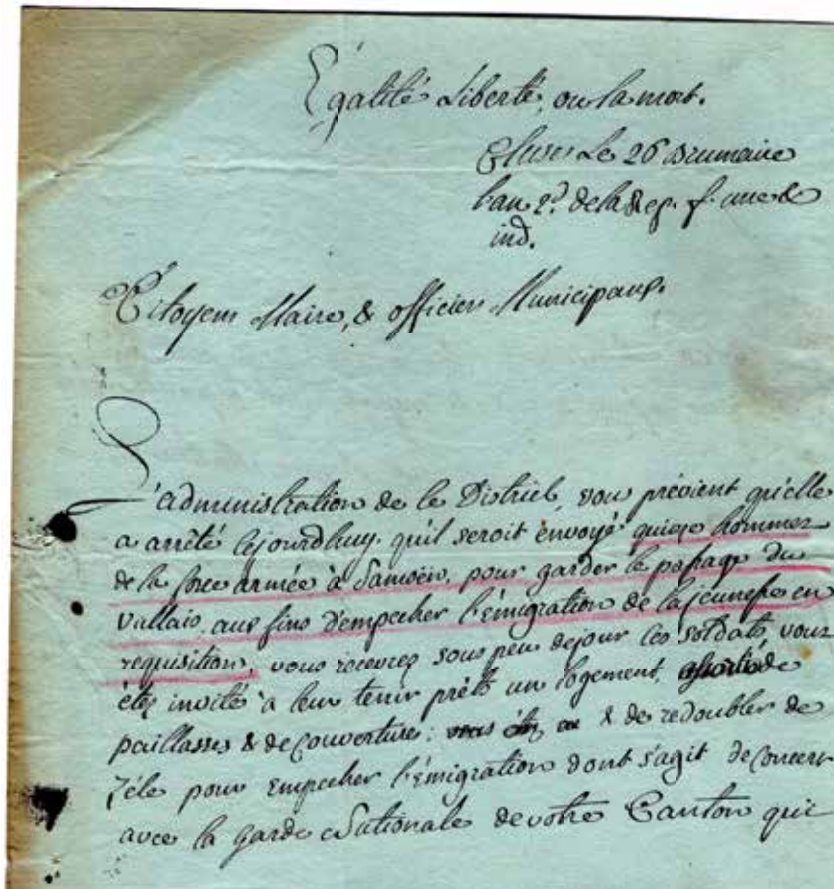 Égalité Liberté, ou la mort.
Cluses Le 26 Brumaire
l'an 2.d de la Rep. f. une &
ind.
Citoyens Maire, & officiers Municipaux.
L'administration de ce District, vous prévient qu'elle
a arrêté cejourdhuy qu'il seroit envoyé quinze hommes
de la force armée à Samoën, pour garder le passage du
Vallais, aux fins d'empecher l'émigration de la jeunesse en
requisition, vous recevrez sous peu de jour ces soldats, vous
étes invité à leur tenir prêt un logement, de
paillasses & de couvertures: & de redoubler de
Zéle pour empecher l'émigration dont s'agit de Concert
avec la garde Nationale de votre Canton qui